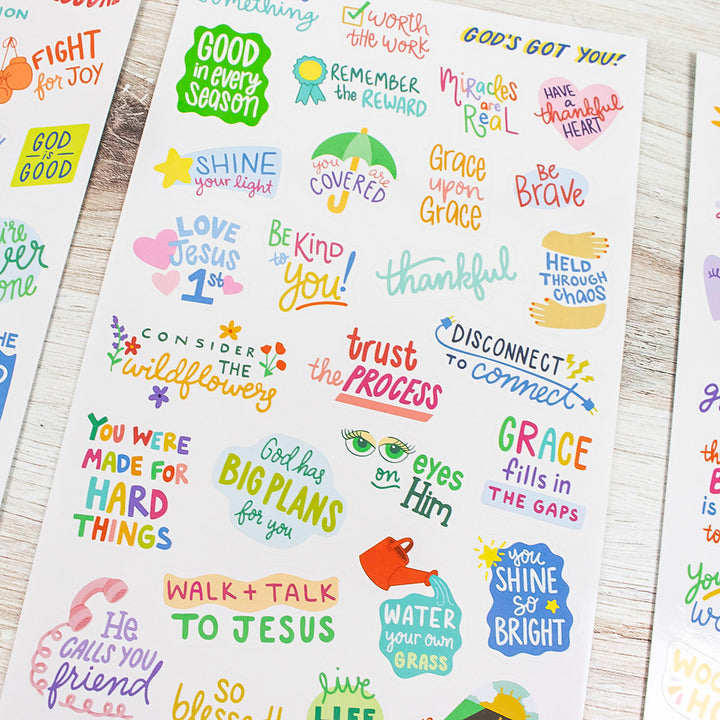 something
worth
the work
GOD'S GOT YOU!
GOOD
in every
season
REMEMBER
the REWARD
Miracles
are
Real
HAVE
a
thankful
HEART
SHINE
your light
you are
COVERED
Grace
upon
Grace
Be
BRAVE
LOVE
Jesus
1st
BE KIND
to
you!
thankful
HELD
THROUGH
CHAOS
CONSIDER
THE
wildflowers
trust
the PROCESS
DISCONNECT
TO connect
YOU WERE
MADE FOR
HARD
THINGS
God has
BIG PLANS
for you
eyes
on
Him
GRACE
fills in
THE GAPS
WALK + TALK
TO JESUS
WATER
your own
GRASS
you
SHINE
SO
BRIGHT
He
CALLS YOU
friend
SO
blessed
live
LIFE
FIGHT
for JOY
GOD
is
GOOD
THE